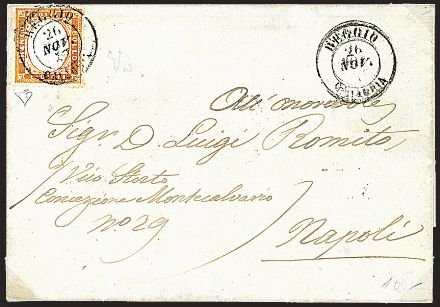 REGGIO
26
NOV
CALABRIA
REGGIO
26
NOV.
CALABRIA
Sigr. D. Luigi Romito
Vico Storto
Concezione Montecalvario
no 29
Napoli